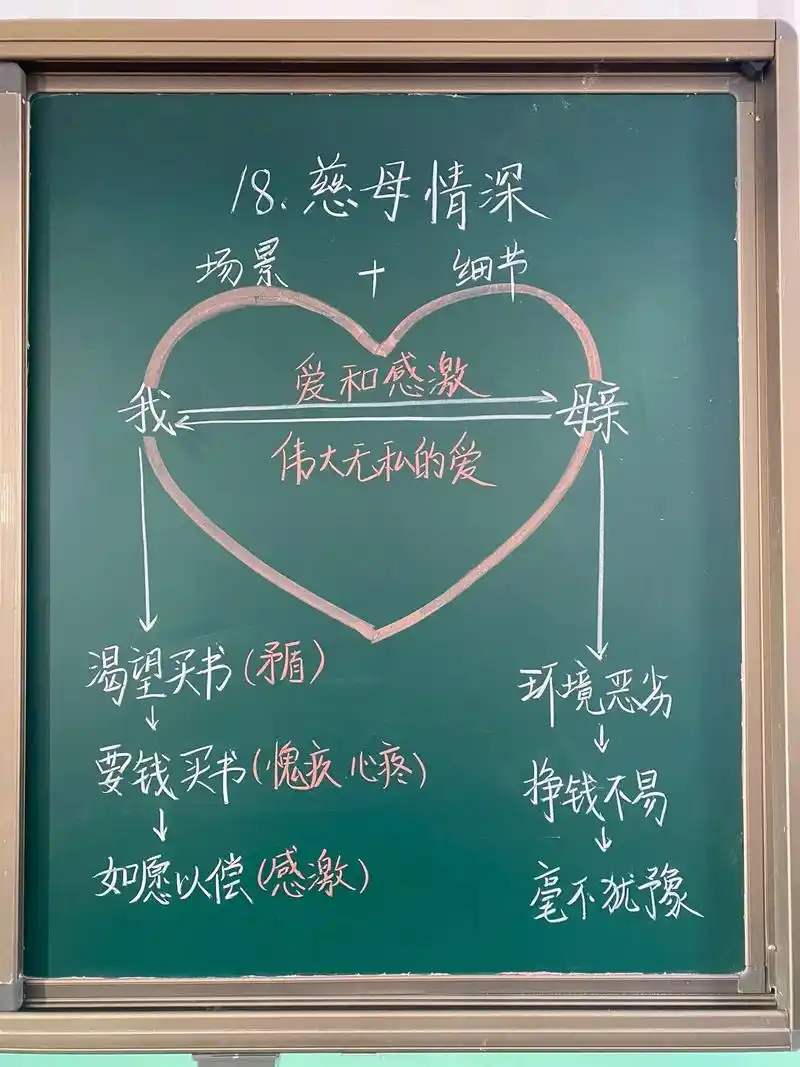 18.慈母情深
场景 + 细节
爱和感激
我 母亲
伟大无私的爱
渴望买书(矛盾)
环境恶劣
要钱买书(愧疚 心疼)
挣钱不易
如愿以偿(感激)
毫不犹豫